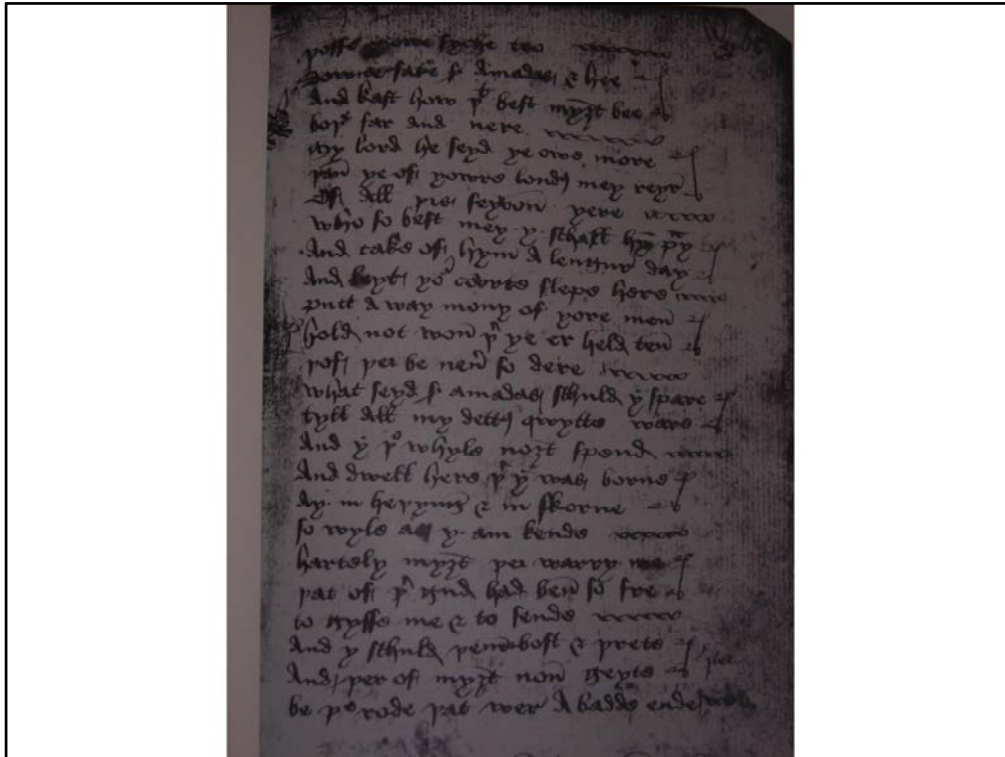 sate sr Amadas & hee
And kast how þt best myȝt bee
boþe far and nere
lord he seyd ye owe more
þan ye of yowre lond mey
Of all þis seyvon yere
Who so best mey y schall hym pray
And take of hym A lengur day
And yor cowrte here
putt A way mony of yore men
hold not won þt ye er held ten
þof þei be neuer so dere
What seyd sr amadas schuld y spare
tyll all my dettes qwytte ware
And y þo whyle noȝt spend
And dwell here þt y was borne
Ay in heþyng & in skorne
so wyle as y am kende
hartely myȝt þei warry me
þat of þr gud had ben so fre
to gyffe me & to lende
And y schuld bost & þrete
And þer of myȝt non geyte
be þe rode þat wer A badde ende